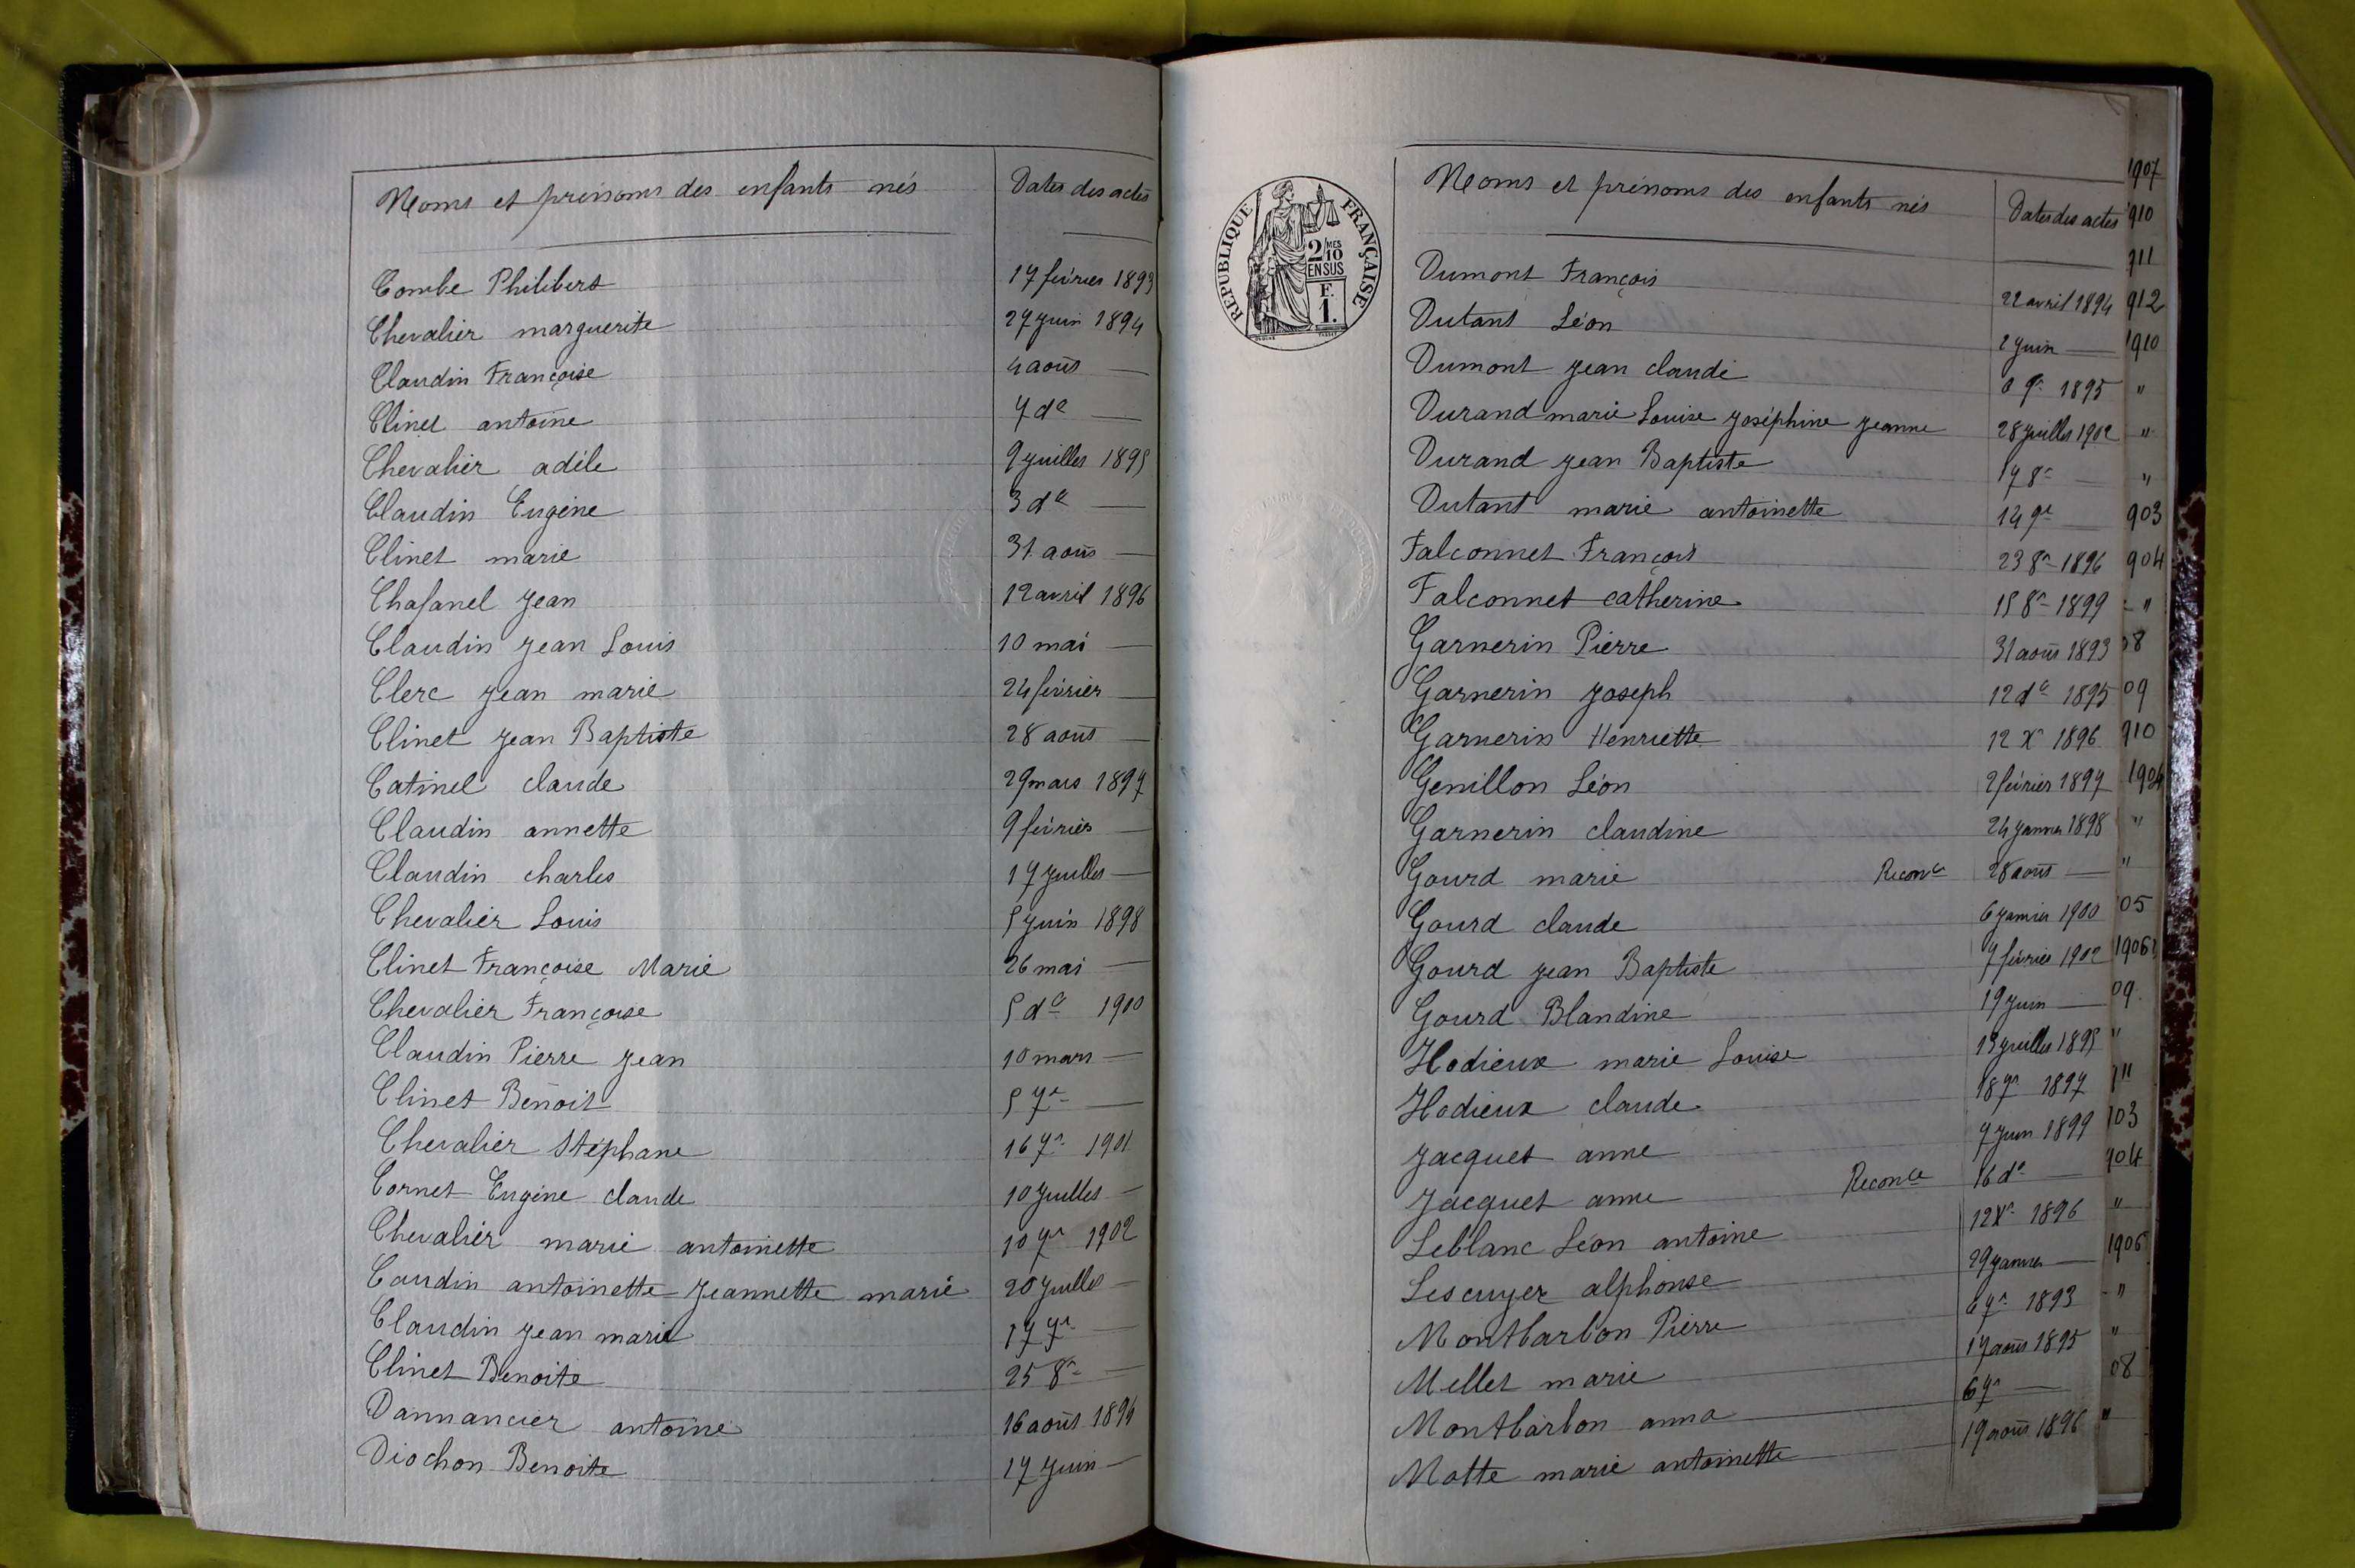 Noms et prénoms des enfants nés Dates des actes
Combe Philibert 17 février 1893
Chevalier marguerite 27 juin 1894
Claudin Françoise 4 août —
Clinet antoine 7 de —
Chevalier adèle 9 juillet 1895
Claudin Eugène 3 de —
Clinet marie 31 août —
Chasanel Jean 12 avril 1896
Claudin Jean Louis 10 mai —
Clerc Jean marie 24 février —
Clinet Jean Baptiste 28 août —
Catinel claude 29 mars 1897
Claudin annette 9 février —
Claudin charles 17 juillet —
Chevalier Louis 5 juin 1898
Clinet Françoise Marie 26 mai —
Chevalier Françoise 5 de 1900
Claudin Pierre Jean 10 mars —
Clinet Benoit 5 7re —
Chevalier Stéphane 16 7re 1901
Cornet Eugène claude 10 juillet —
Chevalier marie antoinette 10 7re 1902
Caudin antoinette Jeannette marie 20 juillet —
Claudin Jean marie 17 7re —
Clinet Benoite 25 8re —
Dannancier antoine 16 août 1894
Diochon Benoite 17 juin —
REPUBLIQUE FRANÇAISE
2/10 MES
EN SUS
F.
1.
Noms et prénoms des enfants nés Dates des actes
Dumont François 22 avril 1894
Dutant Léon 2 juin —
Dumont Jean claude 9re 1895
Durand marie Louise Joséphine Jeanne 28 juillet 1902
Durand Jean Baptiste 17 8re —
Dutant marie antoinette 14 9re —
Falconnet François 23 8re 1896
Falconnet catherine 15 8re 1899
Garnerin Pierre 31 août 1893
Garnerin Joseph 12 de 1895
Garnerin Henriette 12 Xre 1896
Genillon Léon 2 février 1897
Garnerin claudine 24 janvier 1898
Gourd marie Reconce 28 août —
Gourd claude 6 janvier 1900
Gourd Jean Baptiste 7 février 1902
Gourd Blandine 19 juin —
Hodieux marie Louise 13 juillet 1895
Hodieux claude 18 7re 1897
Jacquet anne 7 juin 1899
Jacquet anne Reconce 16 de —
Leblanc Léon antoine 12 Xre 1896
Lescuyer alphonse 29 janvier —
Montbarbon Pierre 6 7re 1893
Mellet marie 17 août 1895
Montbarbon anna 6 7re —
Motte marie antoinette 19 août 1896
1907
910
911
912
1910
"
"
"
903
904
"
08
09
910
1904
"
"
05
1906
09
"
"
03
904
"
1906
"
"
08
"